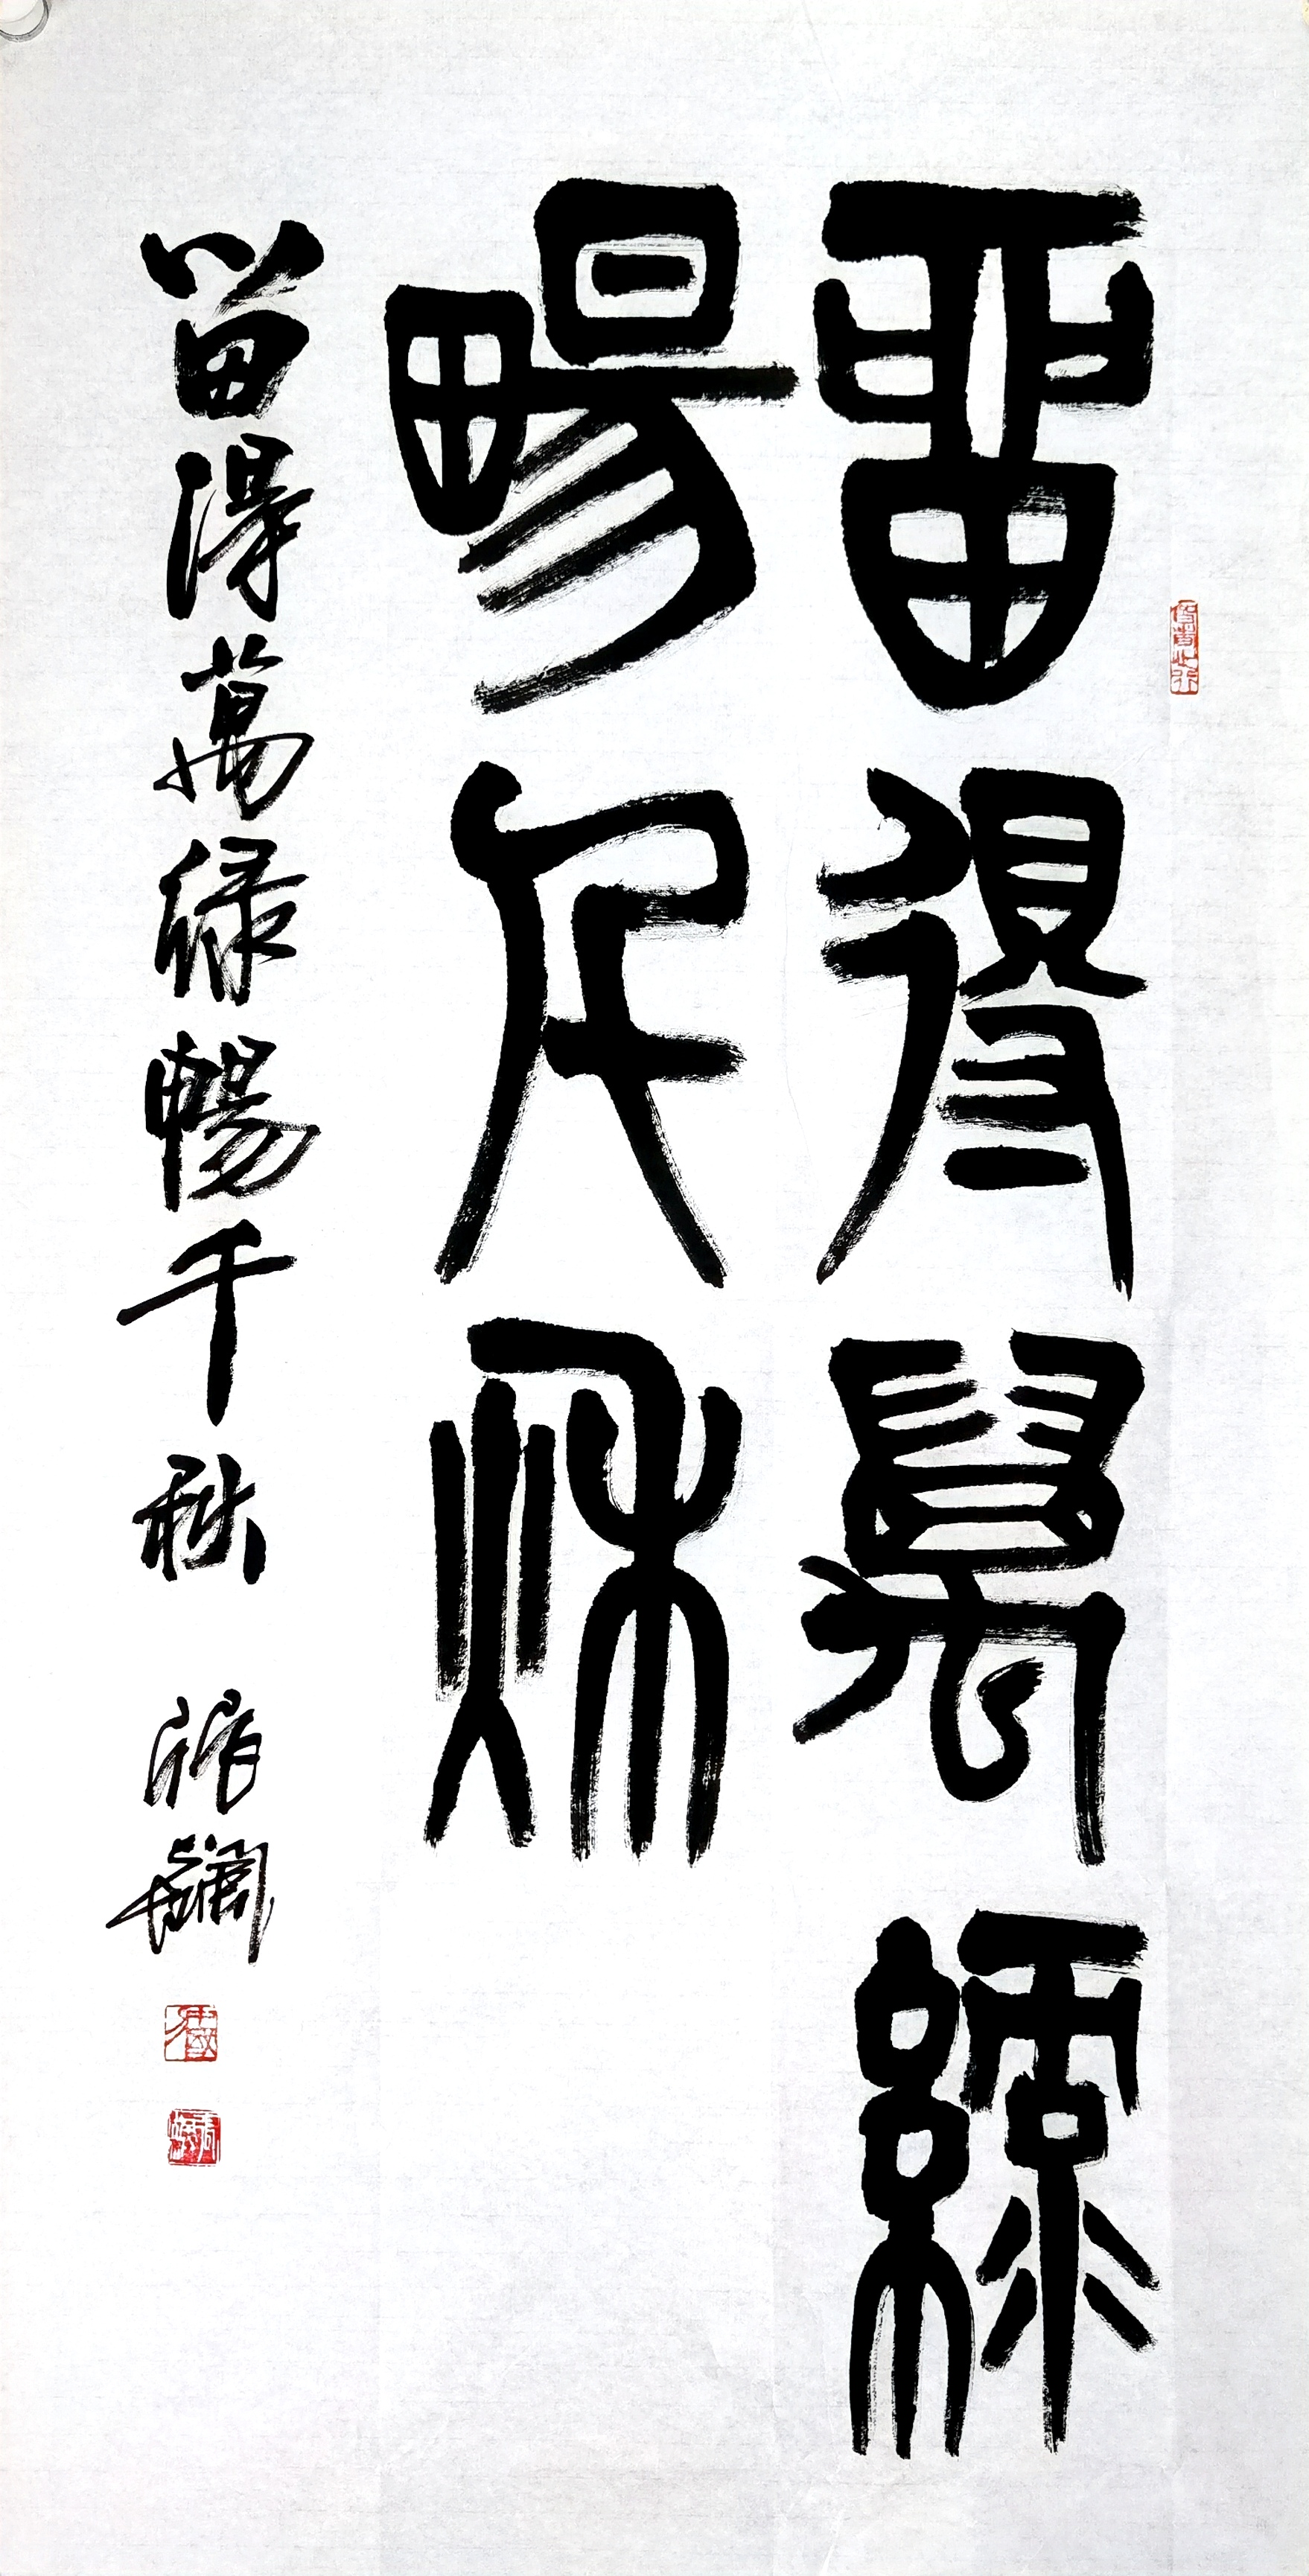 留得萬綠
暢千秋
留得萬綠暢千秋